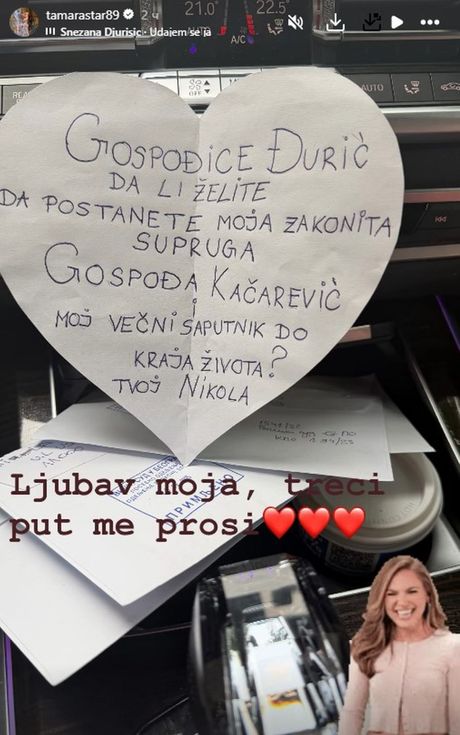 tamarastar89 2 ч
Snezana Djurisic • Udajem se ja
21.0 22.5
A/C
OFF
AUTO
GOSPOĐICE ĐURIĆ
DA LI ŽELITE
DA POSTANETE MOJA ZAKONITA
SUPRUGA
GOSPOĐA KAČAREVIĆ
i
MOJ VEČNI SAPUTNIK DO
KRAJA ŽIVOTA?
TVOJ NIKOLA
Ljubav moja, treci
put me prosi❤️❤️❤️